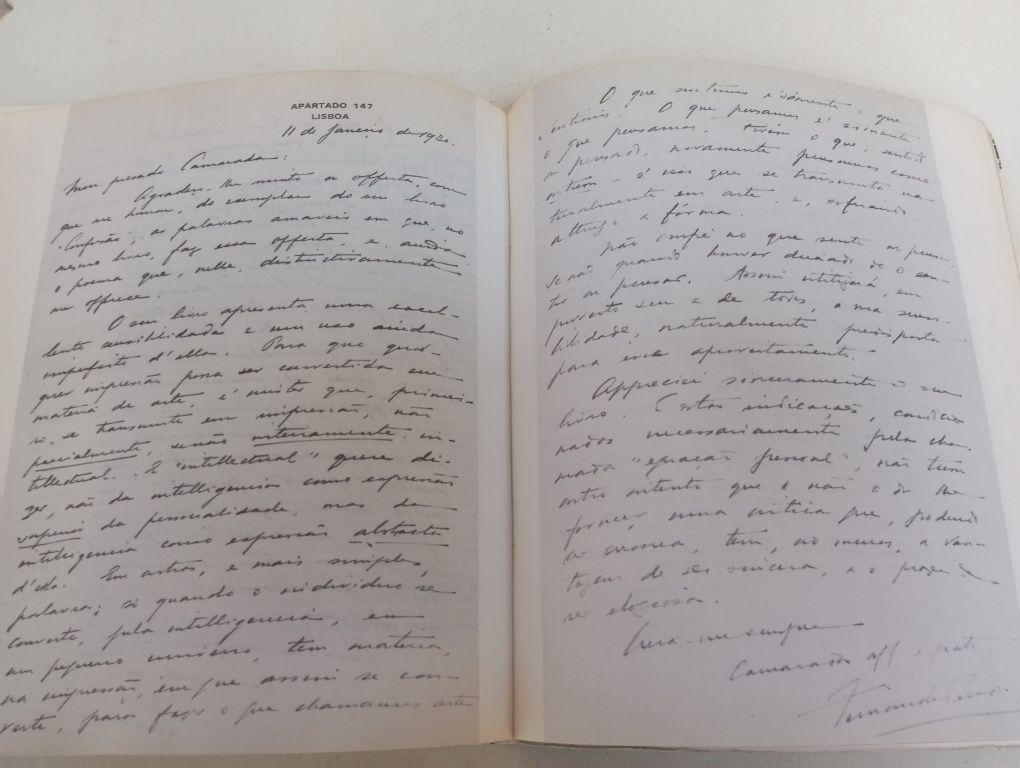 APARTADO 147
LISBOA
11 de Janeiro de 1930.
Meu prezado Camarada:
Agradeço-lhe muito a offerta, com
que me honrou, do exemplar do seu livro
"Confusão", as palavras amaveis em que, no
mesmo livro, faz essa offerta, e ainda
o poema que, nelle, distinctivamente
me offerece.
O seu livro apresenta uma excel-
lente sensibilidade e um uso ainda
imperfeito d'ella. Para que qual-
quer impressão possa ser convertida em
materia de arte, é mister que, primei-
ro, se transmute em impressão, não
parcialmente, senão inteiramente in-
tellectual. E "intellectual" quere di-
zer, não da intelligencia como expressão
superior da personalidade, mas da
intelligencia como expressão abstracta
d'ella. Em outras, e mais simples,
palavras; só quando o individuo se
converte, pela intelligencia, em
um pequeno universo, tem materia,
na impressão, em que assim se con-
verte, para fazer o que chamamos arte
O que sentimos é sómente o que
sentimos. O que pensamos é sómente
o que pensamos. Porém o que, sentido
ou pensado, novamente pensamos como
outrem – é isso que se transmuta na-
turalmente em arte, e, esfriando,
attinge a fórma.
Não confie no que sente ou pensa,
senão quando houver deixado de o sen-
tir ou pensar. Assim utilizará, em
proveito seu e de todos, a sua sensi-
bilidade, naturalmente predisposta
para esse aproveitamento.
Appreciei sinceramente o seu
livro. Estas indicações, condicio
nadas necessariamente pela cha-
mada "equação pessoal", não teem
outro intento que o não o de lhe
fornecer uma critica que, podendo
ser erronea, tem, ao menos, a van-
tagem de ser sincera, e o prazer de
ser elogiosa.
Creia-me sempre
Camarada affº e grato
Fernando Pessoa